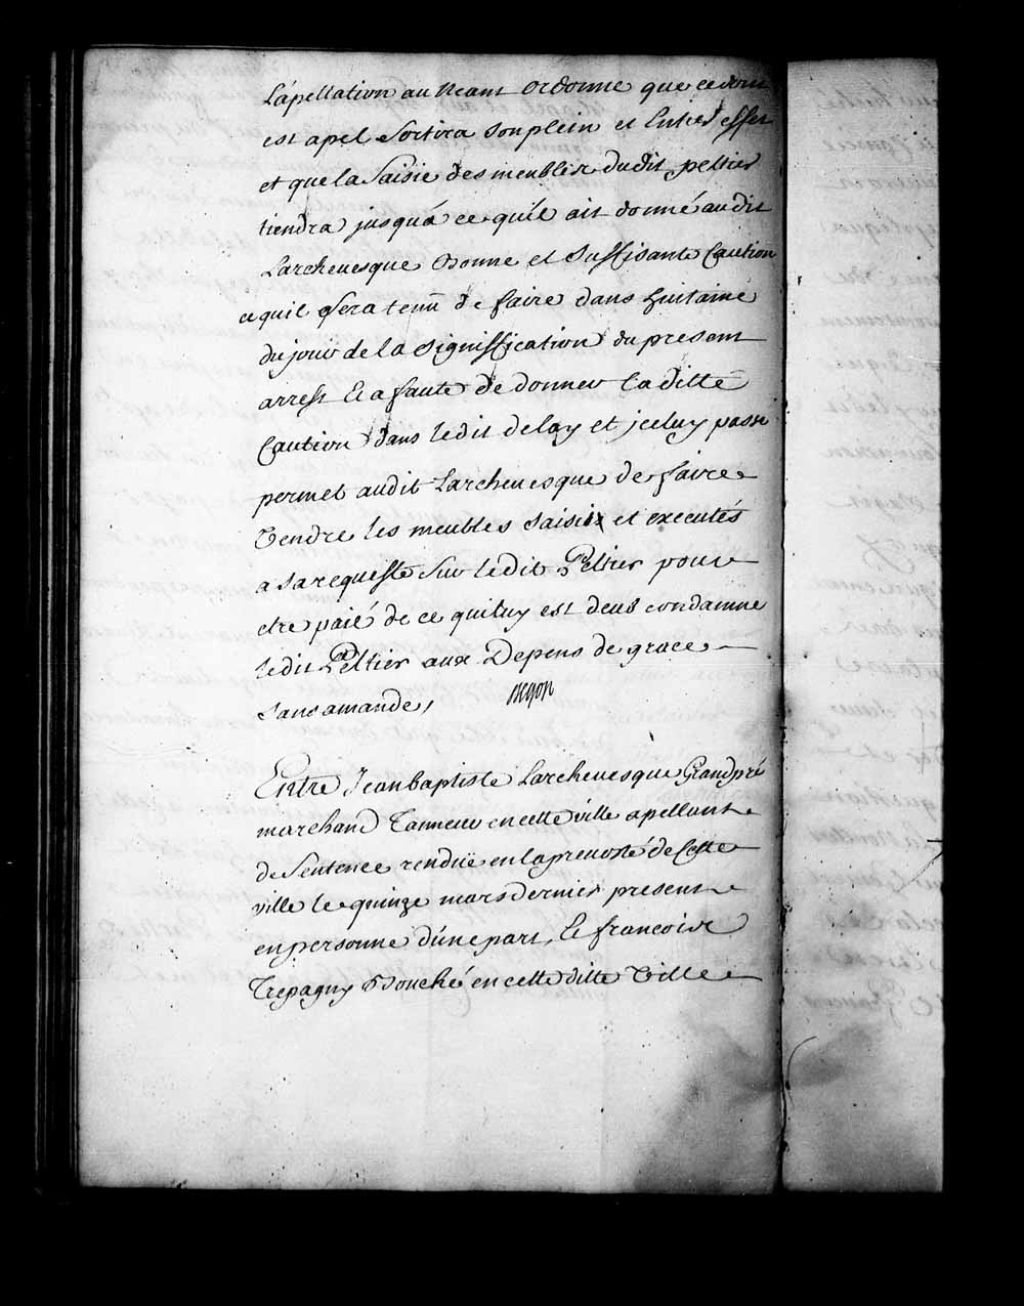 L'apellation au neant ordonne que ce dont
est apel Sortira son plein et Entier effet
et que la Saisie des meubles dudit peltier
tiendra jusqu'a ce qu'il ait donné audit
Larchevesque Bonne et Suffisante Caution
ce quil Sera tenu de faire dans huitaine
du jour de la Signiffication du present
arrest Et a faute de donner la ditte
Caution dans ledit delay et jceluy passé
permet audit Larchevesque de faire
Vendre les meubles saisis et executés
a sa requeste Sur ledit Peltier pour
etre paié de ce qui luy est deub condamne
ledit Peltier aux Depens de grace
sans amande,
Begon
Entre Jean baptiste Larchevesque Grandpré
marchand Tanneur en cette ville apellant
de Sentence rendue en la prevosté de Cette
ville le quinze mars dernier present
en personne d'une part, Et francois
Trepagny Bouché en cette ditte Ville